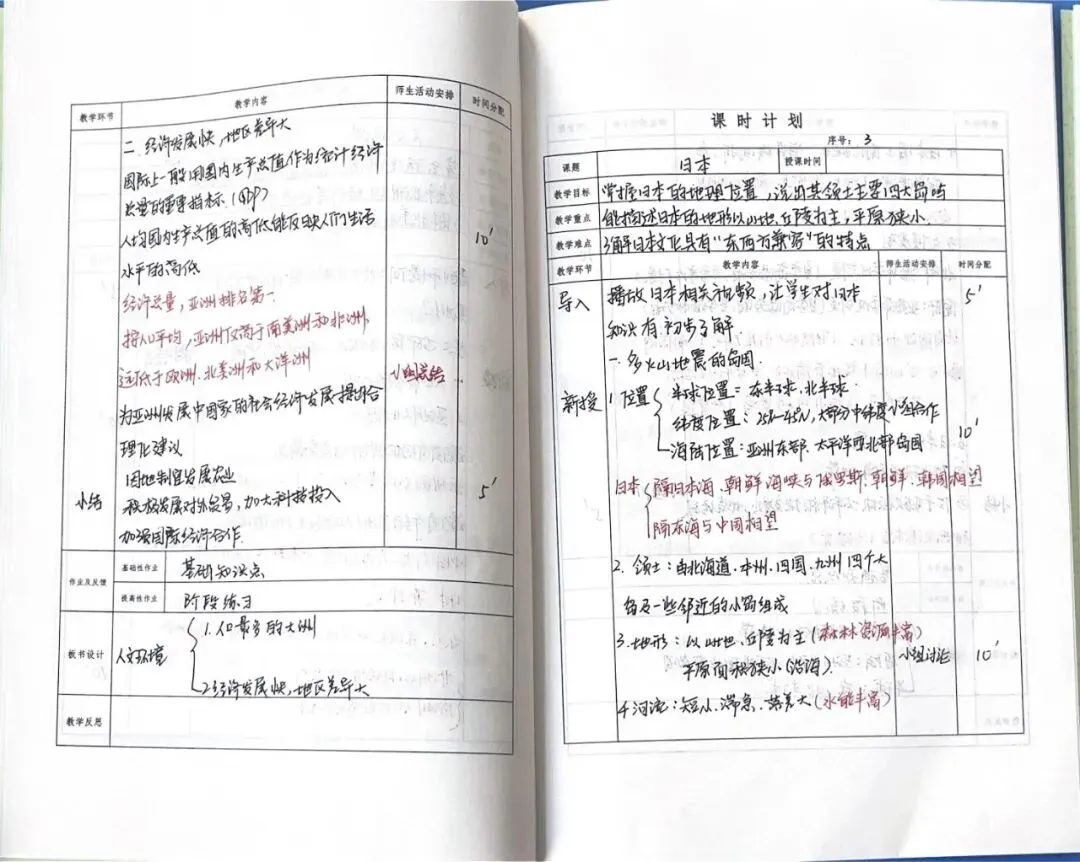 教学环节 教学内容 师生活动安排 时间分配
二、经济发展快,地区差异大
国际上一般用国内生产总值作为统计经济
总量的重要指标.(GDP)
人均国内生产总值的高低能反映人们生活 10′
水平的高低
经济总量,亚洲排名第一
按人口平均,亚洲仅高于南美洲和非洲,
远低于欧洲、北美洲和大洋洲 小组总结
为亚洲发展中国家的社会经济发展提供合
理化建议
因地制宜发展农业
小结 积极发展对外贸易,加大科技投入 5′
加强国际经济合作.
作业及反馈 基础性作业 基础知识点
提高性作业 阶段练习
板书设计 人文环境 1.人口最多的大洲
2.经济发展快,地区差异大
教学反思
课时计划
序号:3
课题 日本 授课时间
教学目标 掌握日本的地理位置,说出其领土主要四大岛屿
教学重点 能描述日本的地形以山地、丘陵为主,平原狭小
教学难点 了解日本文化具有“东西方兼容”的特点
教学环节 教学内容 师生活动安排 时间分配
导入 播放日本相关视频,让学生对日本 5′
知识有初步了解.
一.多火山地震的岛国.
新授 1.位置 半球位置:东半球、北半球.
纬度位置:25N—45N,大部分中纬度 小组合作 10′
海陆位置:亚洲东部、太平洋西北部岛国
日本 隔日本海、朝鲜海峡与俄罗斯、朝鲜、韩国相望
隔东海与中国相望
2.领土:由北海道、本州、四国、九州四个大
岛及一些邻近的小岛组成
3.地形:以山地、丘陵为主(森林资源丰富)
平原面积狭小(沿海). 小组讨论 10′
4.河流:短小、湍急、落差大(水能丰富)